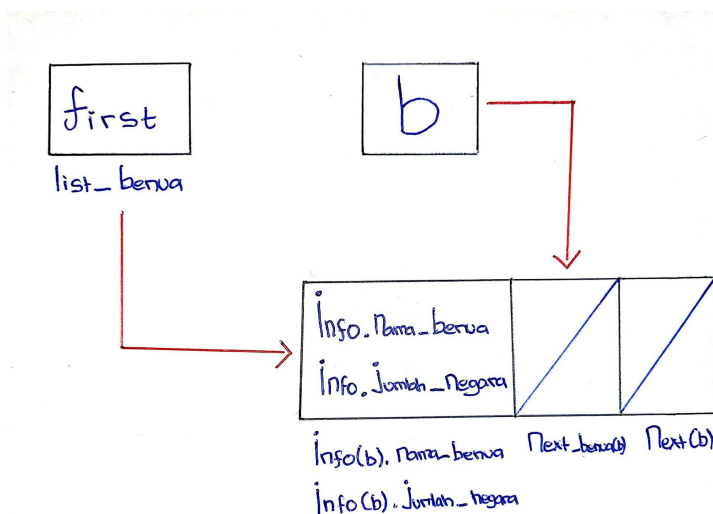 first
list_benua
b
Info.nama_benua
Info.jumlah_negara
Info(b).nama_benua
Info(b).jumlah_negara
Next_benua(b)
Next(b)